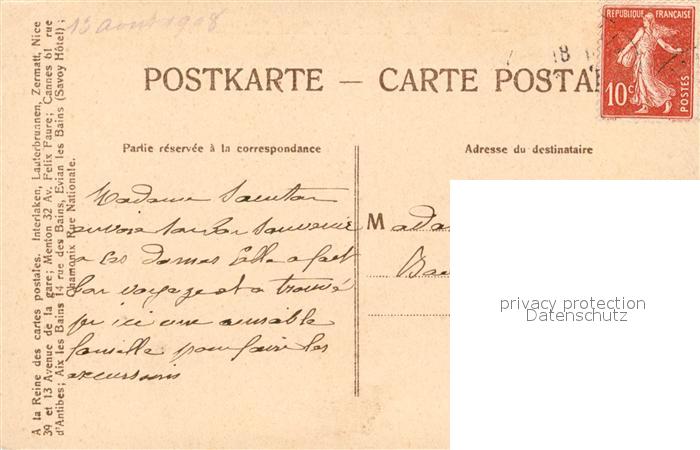 13 Août 1908
POSTKARTE — CARTE POSTA
REPUBLIQUE FRANÇAISE
10c
POSTES
18
Partie réservée à la correspondance
Adresse du destinataire
A la Reine des cartes postales. Interlaken, Lauterbrunnen, Zermatt, Nice
39 et 13 Avenue de la gare; Menton 32 Av. Felix Faure; Cannes 61 rue
d'Antibes; Aix les Bains 14 rue des Bains, Evian les Bains (Savoy Hôtel);
Chamonix Rue Nationale.
Madame
envoie son bon souvenir
à ces dames Elle a fait
bon voyage et a trouvé
ici une aimable
famille pour faire les
excursions
Mada
privacy protection
Datenschutz